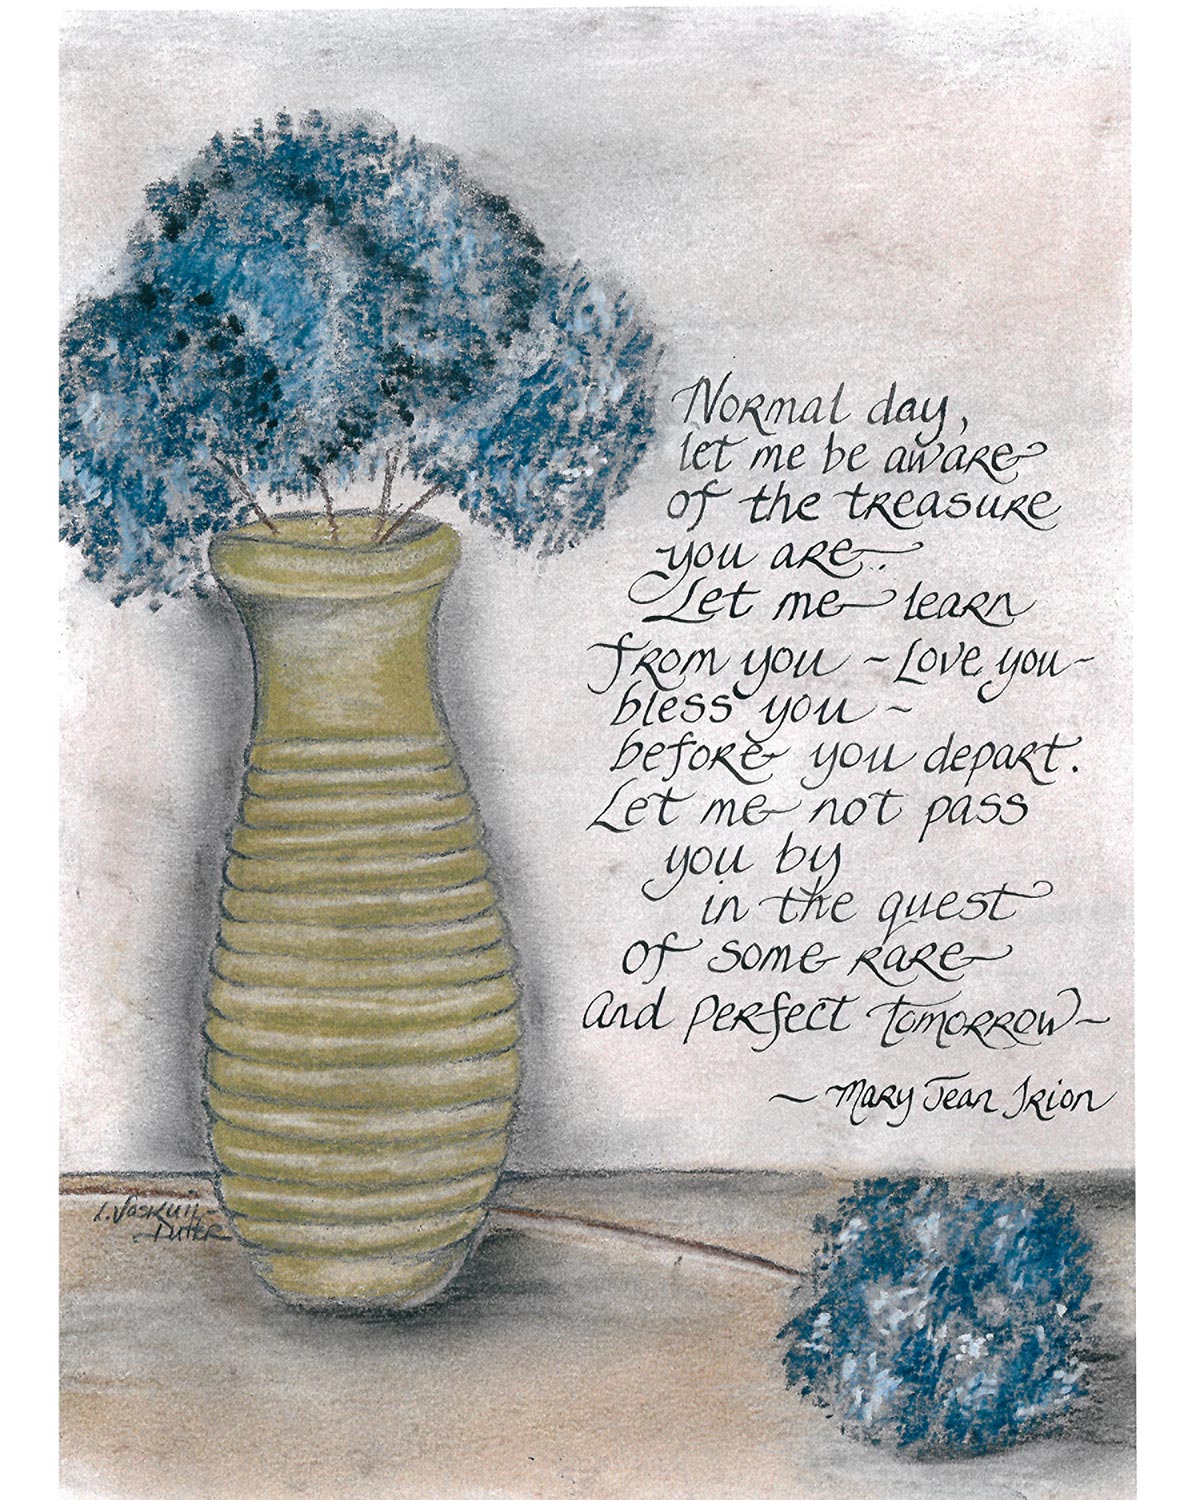 Normal day,
let me be aware
of the treasure
you are.
Let me learn
from you ~ Love you ~
bless you ~
before you depart.
Let me not pass
you by
in the quest
of some rare
and perfect tomorrow ~
~ Mary Jean Irion
L. Voskuil-
Dutter